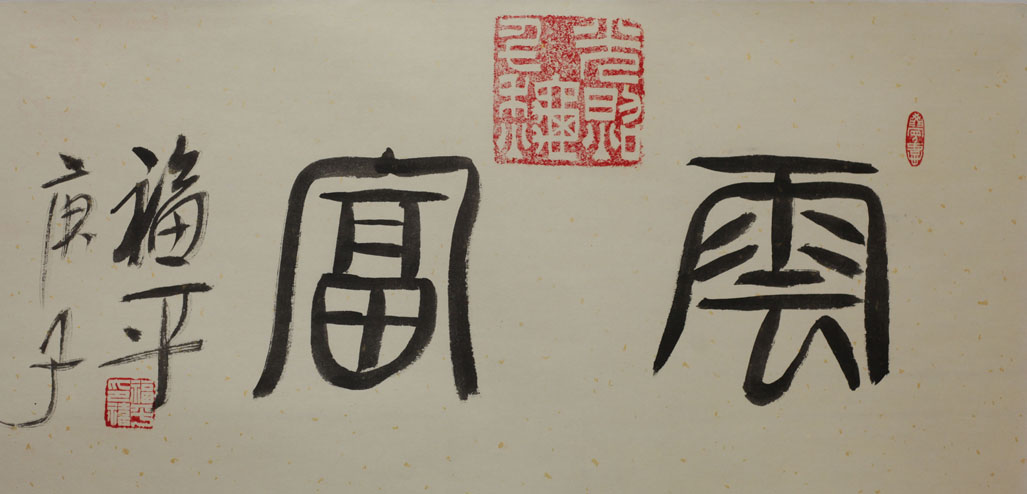 雲富
福平
庚子